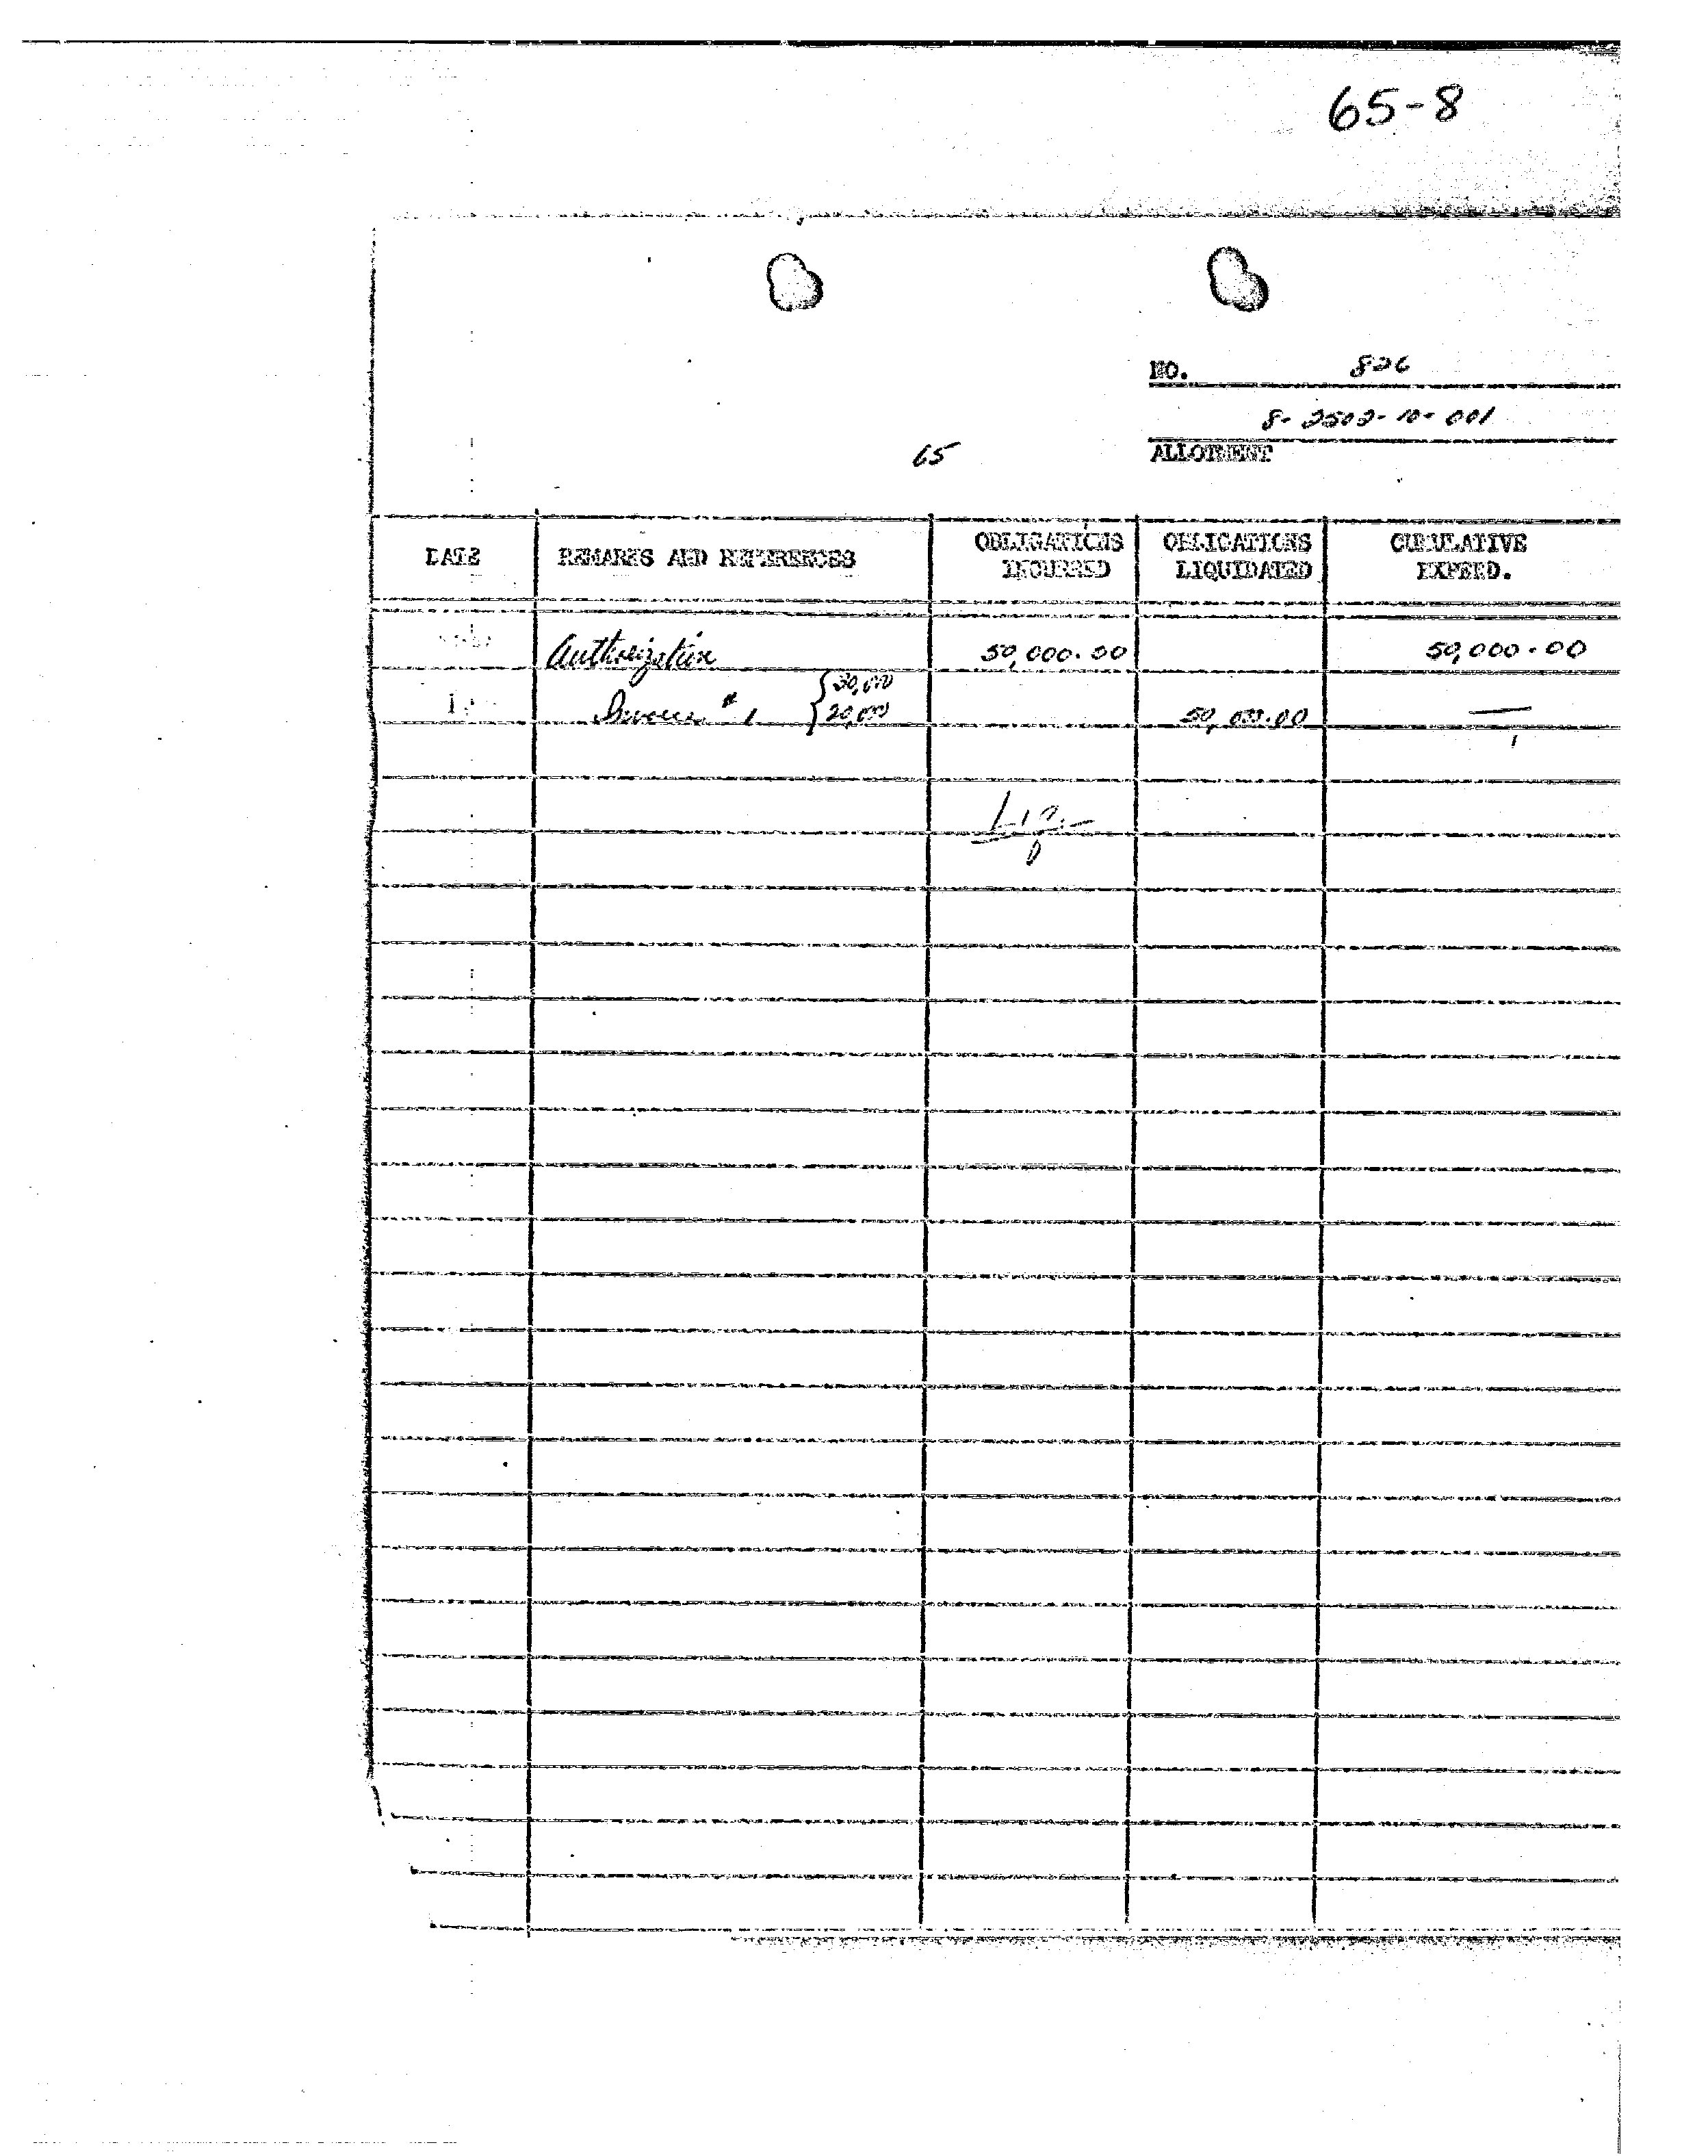 65-8
NO. 826
8-2502-10-001
65
ALLOTMENT
DATE REMARKS AND REFERENCES OBLIGATIONS INCURRED OBLIGATIONS LIQUIDATED CUMULATIVE EXPEND.
Authorization 50,000.00 50,000.00
Invoice #1 {30,000 50,000.00 —
20,000
Liq.